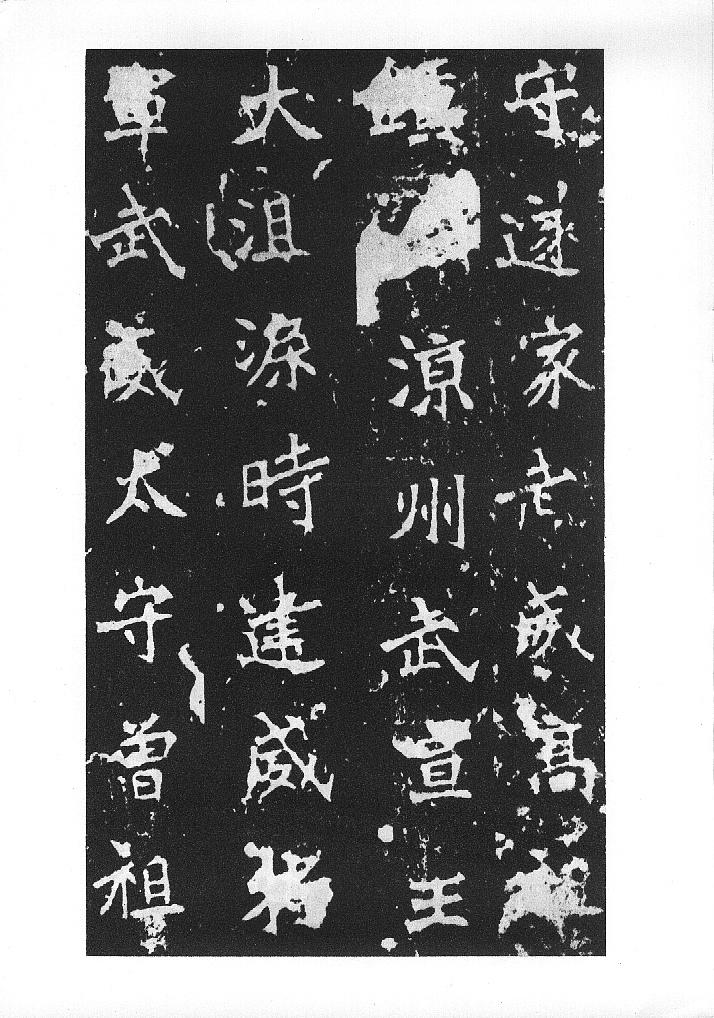 守遂家武威髙祖
鍾涼州武宣王
大沮渠時建威將
軍武威太守曾祖